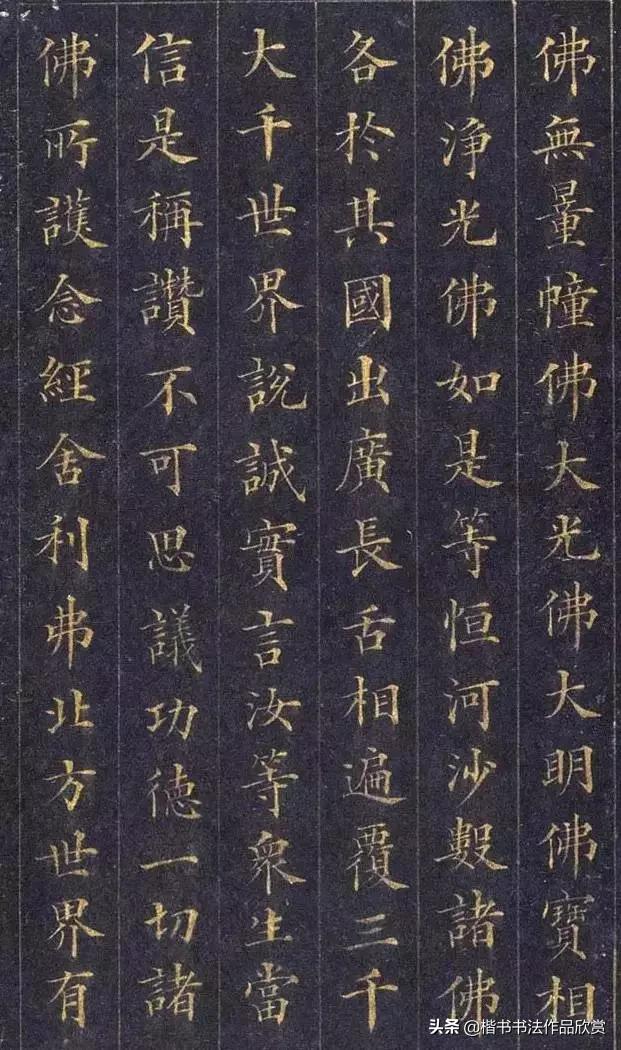 佛無量幢佛大光佛大明佛寶相
佛淨光佛如是等恒河沙數諸佛
各於其國出廣長舌相遍覆三千
大千世界說誠實言汝等衆生當
信是稱讚不可思議功徳一切諸
佛所護念經舍利弗北方世界有
头条 @楷书书法作品欣赏